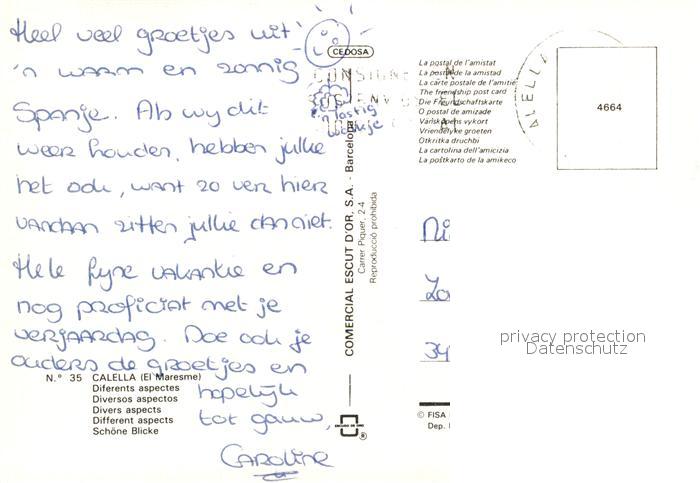 Heel veel groetjes uit
'n warm en zonnig
Spanje. Als wy dit
weer houden, hebben jullie
het ook, want zo ver hier
vandaan zitten jullie dan niet.
Hele fyne vakantie en
nog proficiat met je
verjaardag. Doe ook je
ouders de groetjes en
hopelijk
tot gauw,
CAROLINE
'n lastig
wolkje
N.º 35 CALELLA (El Maresme)
Diferents aspectes
Diversos aspectos
Divers aspects
Different aspects
Schöne Blicke
CEDOSA
COMERCIAL ESCUT D'OR, S.A. - Barcelona
Carrer Piquer, 2-4
Reproducció prohibida
ESCUDO DE ORO
®
CONSIGNE
La postal de l'amistat
La postal de la amistad
La carte postale de l'amitié
The friendship post card
Die Freundschaftskarte
O postal de amizade
Vänskapens vykort
Vriendelyke groeten
Otkritka druchbi
La cartolina dell'amicizia
La poŝtkarto de la amikeco
4664
Ni
Zo
34
privacy protection
Datenschutz
© FISA
Dep.